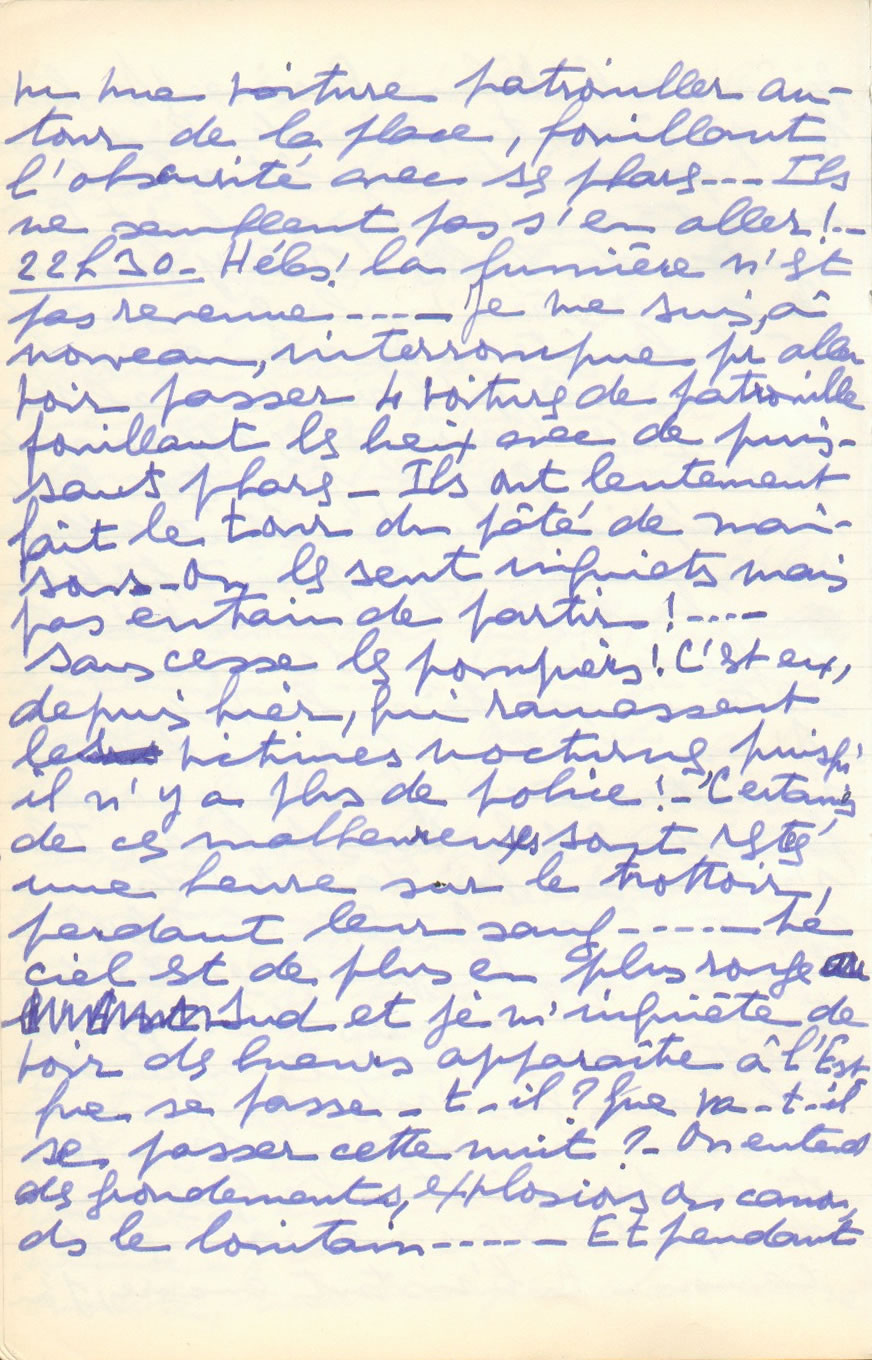 vu une voiture patrouiller au-
tour de la place, fouillant
l'obscurité avec ses phares --- Ils
ne semblent pas s'en aller! --
22h30 - Hélas! la lumière n'est
pas revenue ----- Je me suis, à
nouveau, interrompue pr aller
voir passer 4 voitures de patrouille
fouillant les lieux avec de puis-
sants phares - Ils ont lentement
fait le tour du pâté de mai-
sons - On les sent inquiets mais
pas en train de partir! ----
Sans cesse les pompiers! C'est eux,
depuis hier, qui ramassent
les victimes nocturnes puisqu'
il n'y a plus de police! - Certains
de ces malheureux sont restés
une heure sur le trottoir,
perdant leur sang ------ Le
ciel est de plus en plus rouge au
Sud et je m'inquiète de
voir des lueurs apparaître à l'Est
que se passe-t-il? Que va-t-il
se passer cette nuit? - On entend
des grondements, explosions ou canon,
ds le lointain ----- Et pendant